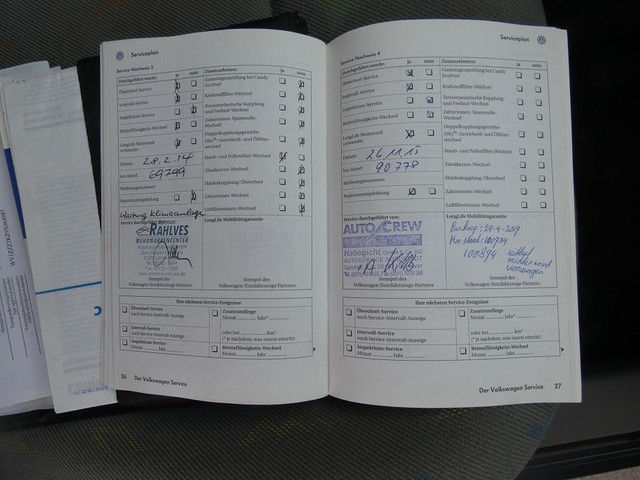 Serviceplan
Service-Nachweis 3
Durchgeführt wurde: ja nein
Ölwechsel-Service
Intervall-Service
Inspektions-Service
Bremsflüssigkeits-Wechsel
LongLife Motorenöl
verwendet
Datum: 28.2.14
km-Stand: 69299
Rechnungsnummer:
Reparaturempfehlung
Wartung Klimaanlage
Zusatzarbeiten: ja nein
Gasanlagenprüfung bei Caddy
EcoFuel
Kraftstofffilter-Wechsel
Torsionselastische Kupplung
und Freilauf-Wechsel
Zahnriemen, Spannrolle-
Wechsel
Doppelkupplungsgetriebe
Staub- und Pollenfilter-Wechsel
Zündkerzen-Wechsel
Haldexkupplung: Ölwechsel
Zahnriemen-Wechsel
Luftfiltereinsatz-Wechsel
Service durchgeführt
RAHLVES
LongLife Mobilitätsgarantie
Stempel des
Volkswagen Nutzfahrzeuge Partners
Stempel des
Volkswagen Nutzfahrzeuge Partners
Ihre nächsten Service-Ereignisse
Ölwechsel-Service
nach Service-Intervall-Anzeige
Intervall-Service
nach Service-Intervall-Anzeige
Inspektions-Service
Monat Jahr
Zusatzumfänge
Monat Jahr*
oder bei km*
(* je nachdem, was zuerst eintritt)
Bremsflüssigkeits-Wechsel
Monat Jahr
26 Der Volkswagen Service
Serviceplan
Service-Nachweis 4
Durchgeführt wurde: ja nein
Ölwechsel-Service
Intervall-Service
Inspektions-Service
Bremsflüssigkeits-Wechsel
LongLife Motorenöl
verwendet
Datum: 26.11.15
km-Stand: 90778
Rechnungsnummer:
Reparaturempfehlung
Zusatzarbeiten: ja nein
Gasanlagenprüfung bei Caddy
EcoFuel
Kraftstofffilter-Wechsel
Torsionselastische Kupplung
und Freilauf-Wechsel
Zahnriemen, Spannrolle-
Wechsel
Doppelkupplungsgetriebe
(DSG®): Getriebeöl- und Ölfilter-
wechsel
Staub- und Pollenfilter-Wechsel
Zündkerzen-Wechsel
Haldexkupplung: Ölwechsel
Zahnriemen-Wechsel
Luftfiltereinsatz-Wechsel
Service durchgeführt von:
AUTO CREW
Habapicht
LongLife Mobilitätsgarantie
100894
Stempel des
Volkswagen Nutzfahrzeuge Partners
Stempel des
Volkswagen Nutzfahrzeuge Partners
Ihre nächsten Service-Ereignisse
Ölwechsel-Service
nach Service-Intervall-Anzeige
Intervall-Service
nach Service-Intervall-Anzeige
Inspektions-Service
Monat Jahr
Zusatzumfänge
Monat Jahr*
oder bei km*
(* je nachdem, was zuerst eintritt)
Bremsflüssigkeits-Wechsel
Monat Jahr
Der Volkswagen Service 27